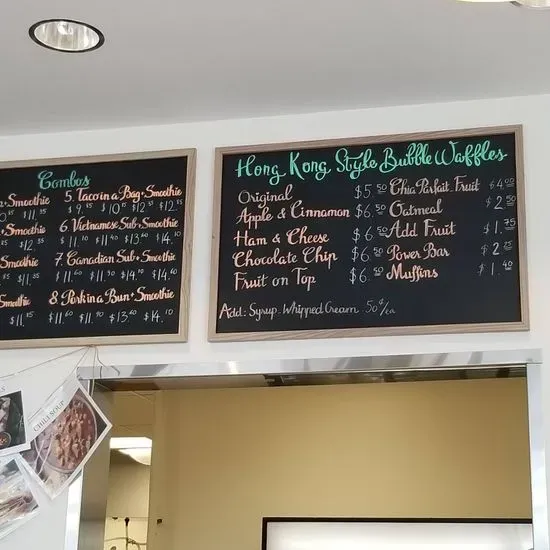 Combos
+Smoothie 5. Taco in a Bag + Smoothie
$11.35 $9.85 $10.85 $12.35 $12.85
+Smoothie 6. Vietnamese Sub + Smoothie
$12.85 $11.10 $11.90 $13.60 $14.10
Smoothie 7. Canadian Sub + Smoothie
$11.35 $11.60 $11.90 $14.10 $14.60
Smoothie 8 Pork in a Bun + Smoothie
$11.15 $11.60 $11.90 $13.60 $14.10
Hong Kong Style Bubble Waffles
Original $5.50
Apple & Cinnamon $6.50
Ham & Cheese $6.50
Chocolate Chip
Fruit on Top $6.50
Chia Parfait Fruit $4.00
Oatmeal $2.50
Add Fruit $1.75
Power Bar $2.75
Muffins $1.40
Add: Syrup. Whipped Cream .50¢/ea
CHILI SOUP